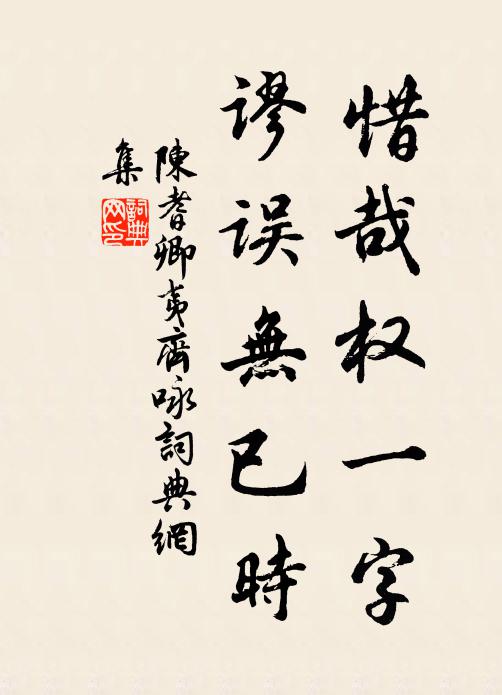 惜哉权一字
谬误無已時
陳耆卿夷齊咏詞典網
集
詞典
网印